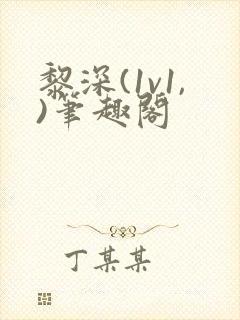 黎深(1v1,
)笔趣阁
丁某某